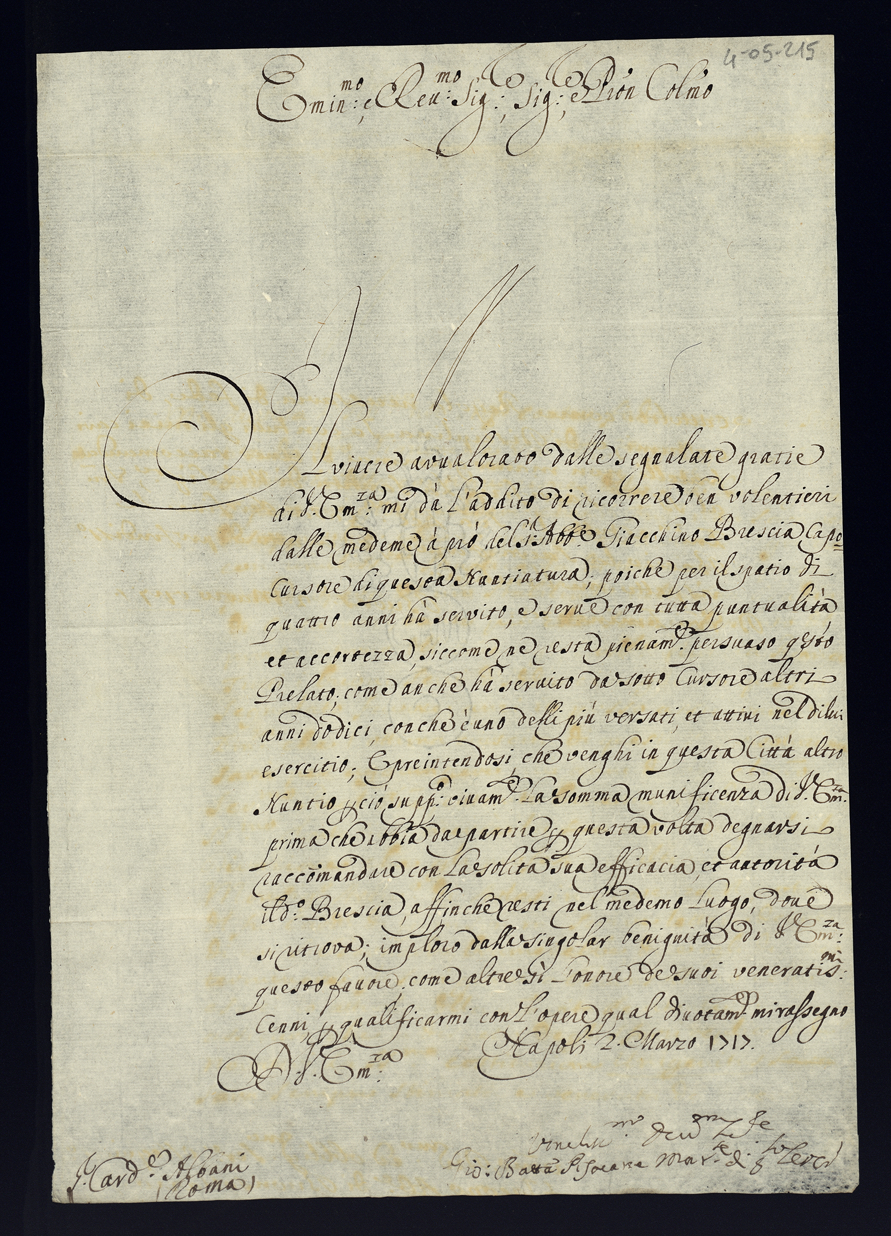 4-05-215
Emin:mo e Reu:mo Sig:re, Sig:re e Pron Colmo
viacre avualorato dalle segnalate gratie
di V. Em:za mi dà l'addito di ricorrere ben volentieri
dalle medeme à pró del S. Abbe Giacchino Brescia Capo=
Cursore di questa Nuntiatura; poiche per il spatio di
quattro anni hà servito, e serue con tutta puntualità
et accortezza, siccome ne resta pienam.te persuaso qsto
Prelato, come anche hà seruito da sotto Cursore altri
anni dodici, con che è uno delli più versati, et attiui nel di lui
esercitio; E preintendosi, che venghi in questa Città altro
Nuntio, p ciò supp:co viuam.te la somma munificenza di V. Em:za
prima che abbia da partire p questa volta degnarsi
raccomandare con la solita sua efficacia, et autorità
il d.o Brescia, affinche resti nel medemo Luogo, doue
si ritroua; imploro dalla singolar benignità di V. Em:za
questo fauore, come altresì l'onore de suoi veneratis:mi
Cenni, p qualificarmi con l'opere qual diuotam.te mi rassegno
Di V. Em:za Napoli 2. Marzo 1717.
S. Card.le Albani
(Roma)
Gio: Batta